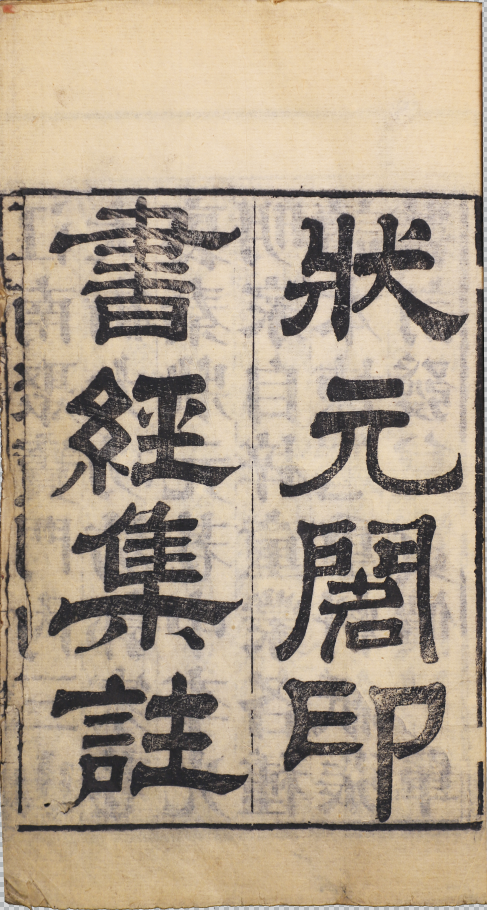 狀元閣印
書經集註